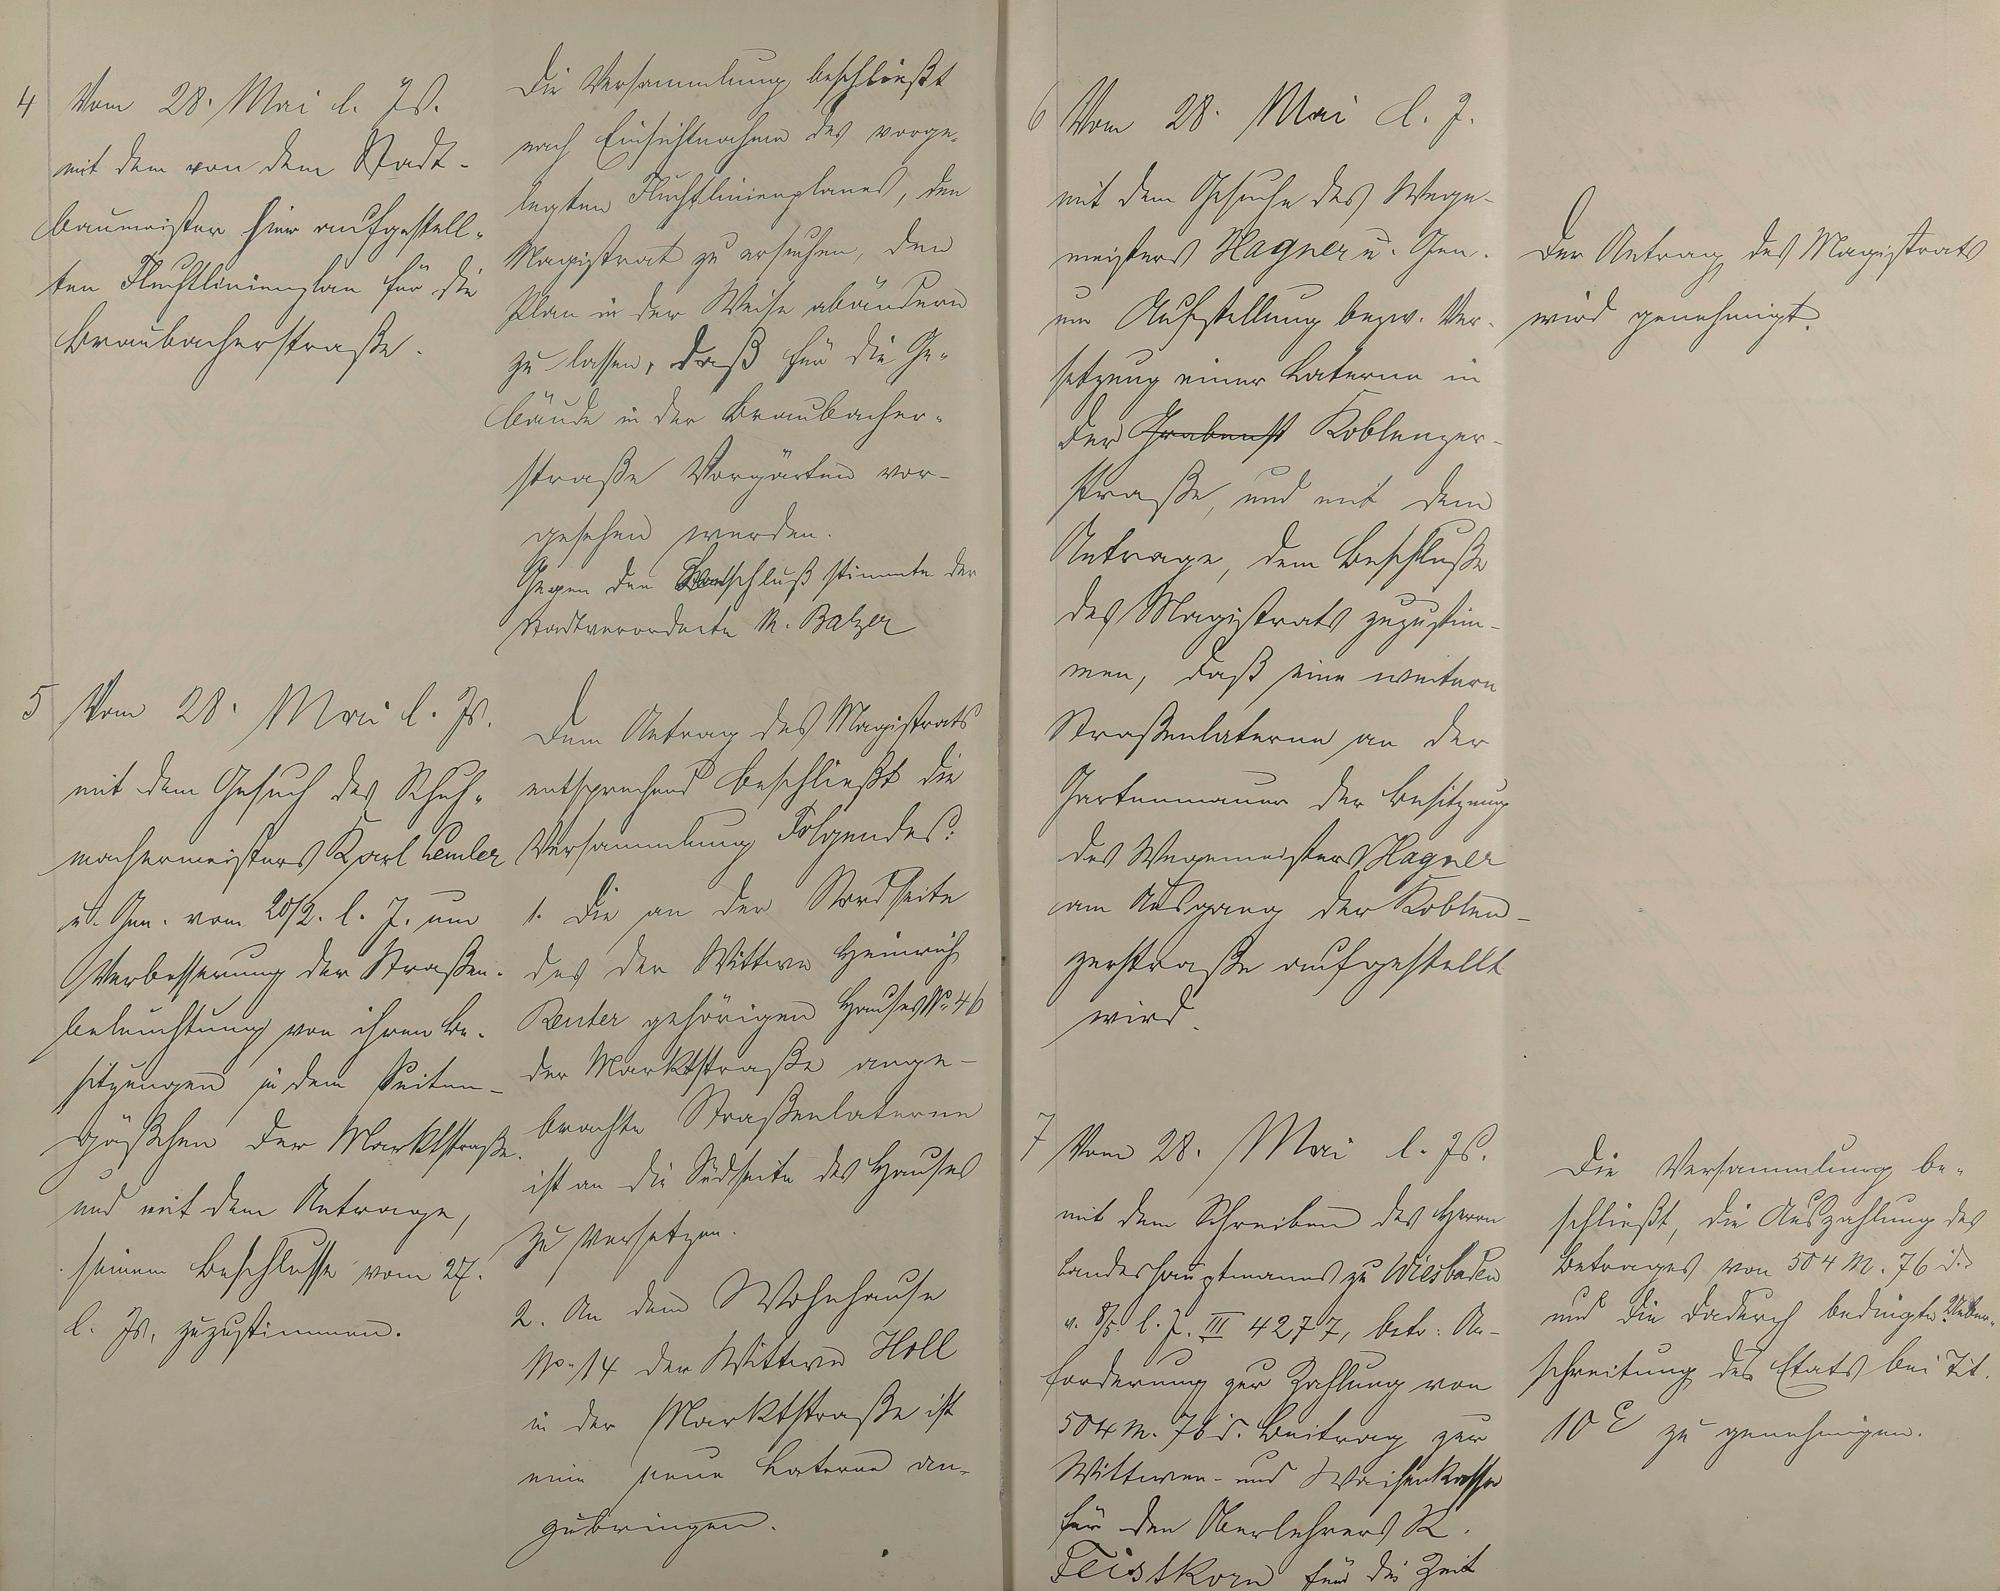 4 Vom 28. Mai l. Js.
mit dem von dem Stadt-
baumeister hier aufgestell-
ten Fluchtlinienplan für die
Braubacherstraße.
Die Versammlung beschließt
nach Einsichtnahme des vorge-
legten Fluchtlinienplanes, den
Magistrat zu ersuchen, den
Plan in der Weise abändern
zu lassen, daß für die Ge-
bäude in der Braubacher-
straße Vorgärten vor-
gesehen werden.
Gegen den Beschluß stimmte der
Stadtverordnete M. Balzer
5 Vom 28. Mai l. Js.
mit dem Gesuch des Schuh-
machermeisters Karl Lemler
u. Gen. vom 20/2. l. J. um
Verbesserung der Straßen-
beleuchtung von ihren Be-
sitzungen in dem Seiten-
gäßchen der Marktstraße.
und mit dem Antrage,
seinem Beschlusse vom 27.
l. Js. zuzustimmen.
Dem Antrag des Magistrats
entsprechend beschließt die
Versammlung Folgendes:
1. Die an der Nordseite
des der Wittwe Heinrich
Reuter gehörigen Hauses No. 46
der Marktstraße ange-
brachte Straßenlaterne
ist an die Südseite des Hauses
zu versetzen.
2. An dem Wohnhause
No. 14 der Wittwe Holl
in der Marktstraße ist
eine neue Laterne an-
zubringen.
6 Vom 28. Mai d. J.
mit dem Gesuche des Wege-
meisters Hagner u. Gen.
um Aufstellung bezw. Ver-
setzung einer Laterne in
der Grabenst Koblenzer-
straße, und mit dem
Antrage, dem Beschluße
des Magistrats zuzustim-
men, daß eine weitere
Straßenlaterne an der
Gartenmauer der Besitzung
des Wegemeisters Hagner
am Ausgang der Koblen-
zerstraße aufgestellt
wird.
Der Antrag des Magistrats
wird genehmigt.
7 Vom 28. Mai l. Js.
mit dem Schreiben des Herrn
Landeshauptmanns zu Wiesbaden
v. 8/5. l. J. III 4277, betr: An-
forderung zur Zahlung von
504 M. 76 d. Beitrag zur
Wittwen- und Waisenkasse
für den Oberlehrers K.
Feistkorn für die Zeit
Die Versammlung be-
schließt, die Auszahlung des
Betrages von 504 M. 76 d.
und die dadurch bedingte Ueber-
schreitung des Etats bei Tit.
10 E zu genehmigen.